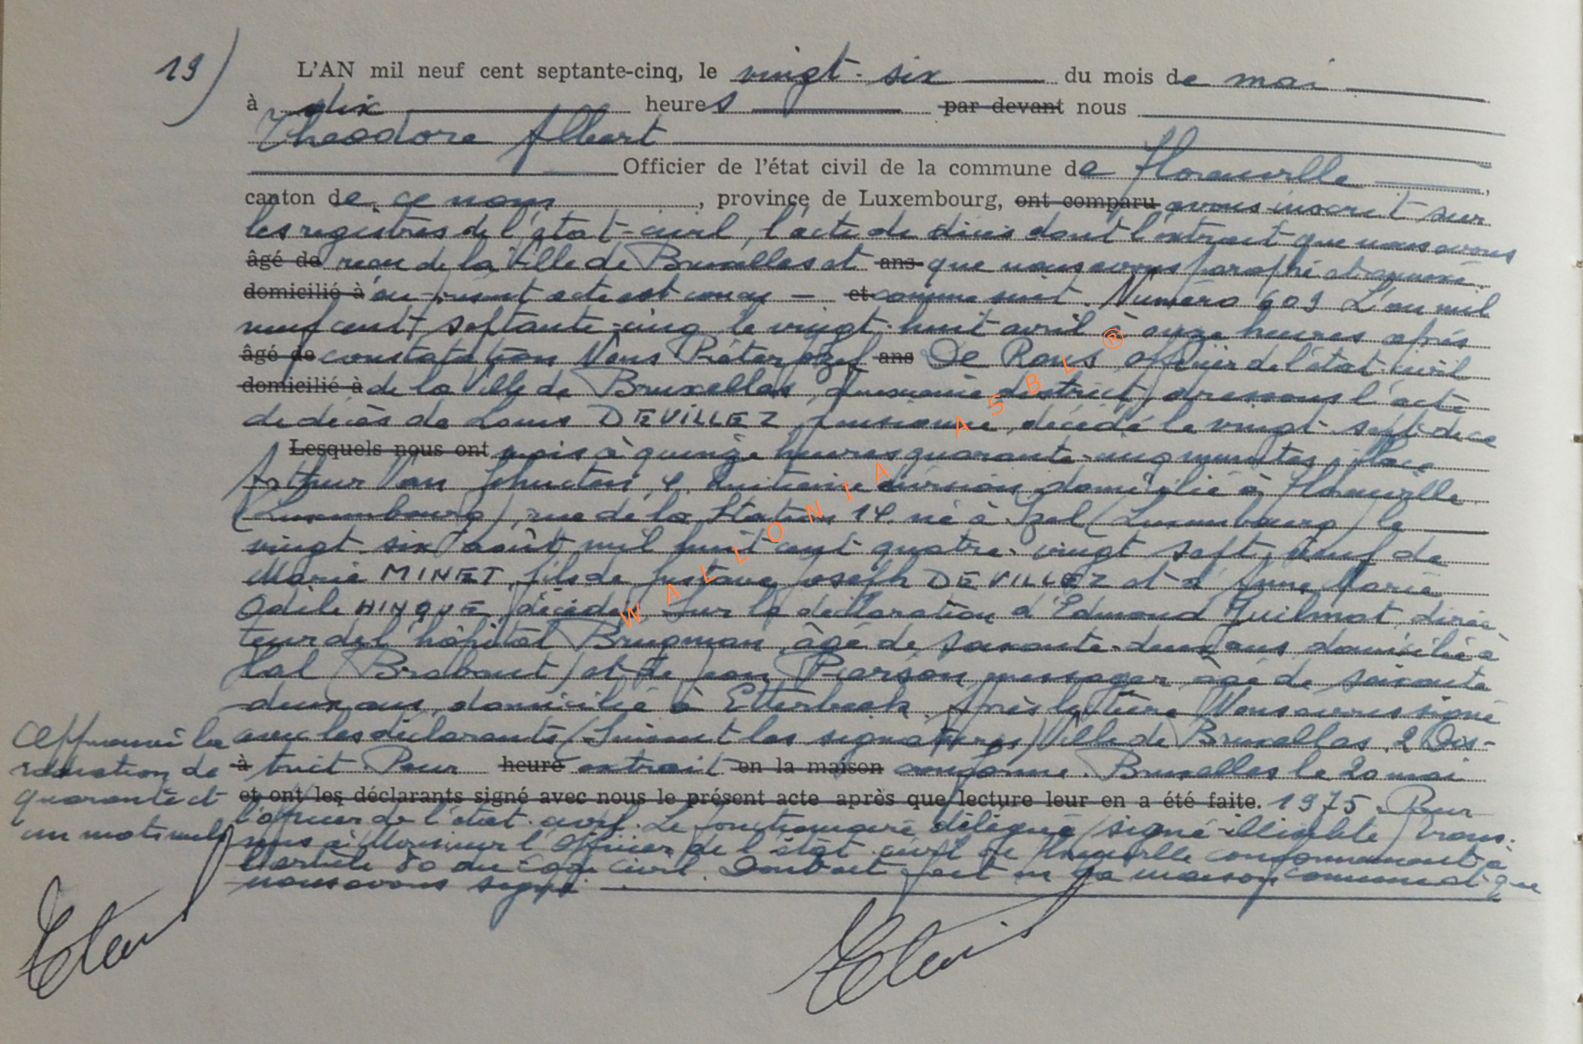 19) L'AN mil neuf cent septante-cinq, le vingt-six du mois de mai
à dix heures par devant nous
Théodore Albert
Officier de l'état civil de la commune de Florenville,
canton de ce nom, province de Luxembourg, ont comparu avons inscrit sur
les registres de l'état-civil, l'acte de décès dont l'extrait que nous avons
âgé de reçu de la Ville de Bruxelles et ans que nous avons paraphé et annexé
domicilié à au présent acte est conçu et comme suit. Numéro 609 L'an mil
neuf cent septante-cinq le vingt-huit avril à onze heures après
âgé de constatation Nous Pieter Jozef ans De Rons officier de l'état-civil
domicilié à de la Ville de Bruxelles, deuxième district, dressons l'acte
de décès de Louis DEVILLEZ, pensionné, décédé le vingt-sept de ce
Lesquels nous ont mois à quinze heures quarante-cinq minutes, place
Arthur Van Gehuchten, 4, huitième division, domicilié à Florenville
(Luxembourg) rue de la Station 14, né à Izel (Luxembourg) le
vingt-six août mil huit cent quatre-vingt sept, veuf de
Marie MINET, fils de Gustave Joseph DEVILLEZ et d'Anne Marie
Odile HINQUE, décédés. Sur la déclaration d'Edmond Guilmot, direc-
teur de l'hôpital Brugman, âgé de soixante-deux ans domicilié à
Hal (Brabant) et de Jean Pierson messager âgé de soixante
deux ans, domicilié à Etterbeek. Après lecture Nous avons signé
avec les déclarants (Suivent les signatures) Ville de Bruxelles, 2 Dis-
à trict Pour heure extrait en la maison conforme. Bruxelles le 20 mai
et ont les déclarants signé avec nous le présent acte après que lecture leur en a été faite. 1975. Pour
l'officier de l'état-civil. Le fonctionnaire délégué (signé illisible) trans-
mis à Monsieur l'Officier de l'état civil de Florenville conformément à
l'article 80 du Code civil. Dont acte fait en la maison communale que
nous avons signé.
Approuvé la
radiation de
quarante et
un mots nuls
WALLONIA ASBL ®